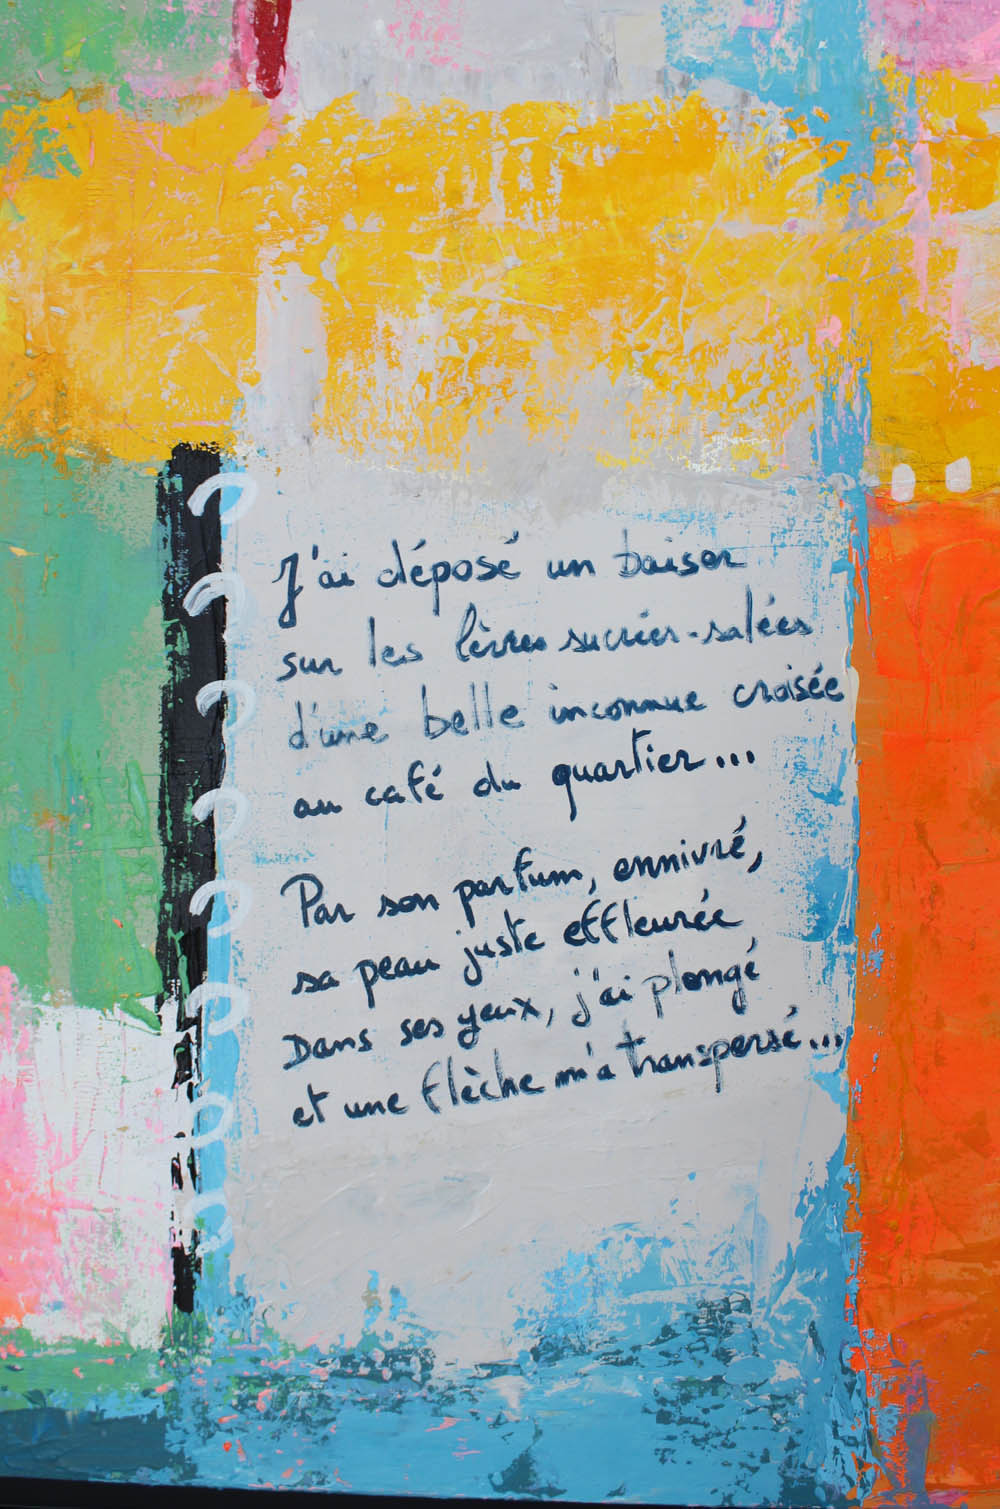 J'ai déposé un baiser
sur les lèvres sucrées-salées
d'une belle inconnue croisée
au café du quartier...
Par son parfum, ennivré,
sa peau juste effleurée
Dans ses yeux, j'ai plongé
et une flèche m'a transpersé...